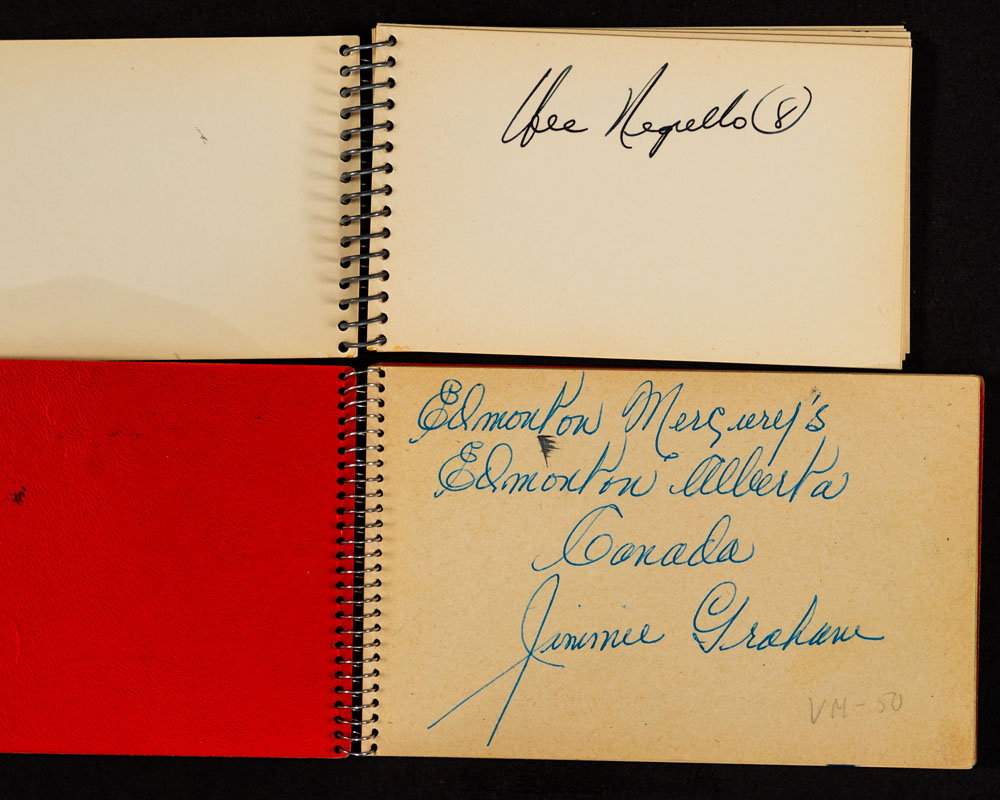 Negrello (8)
Edmonton Mercury's
Edmonton Alberta
Canada
Jimmie Graham
VM-50